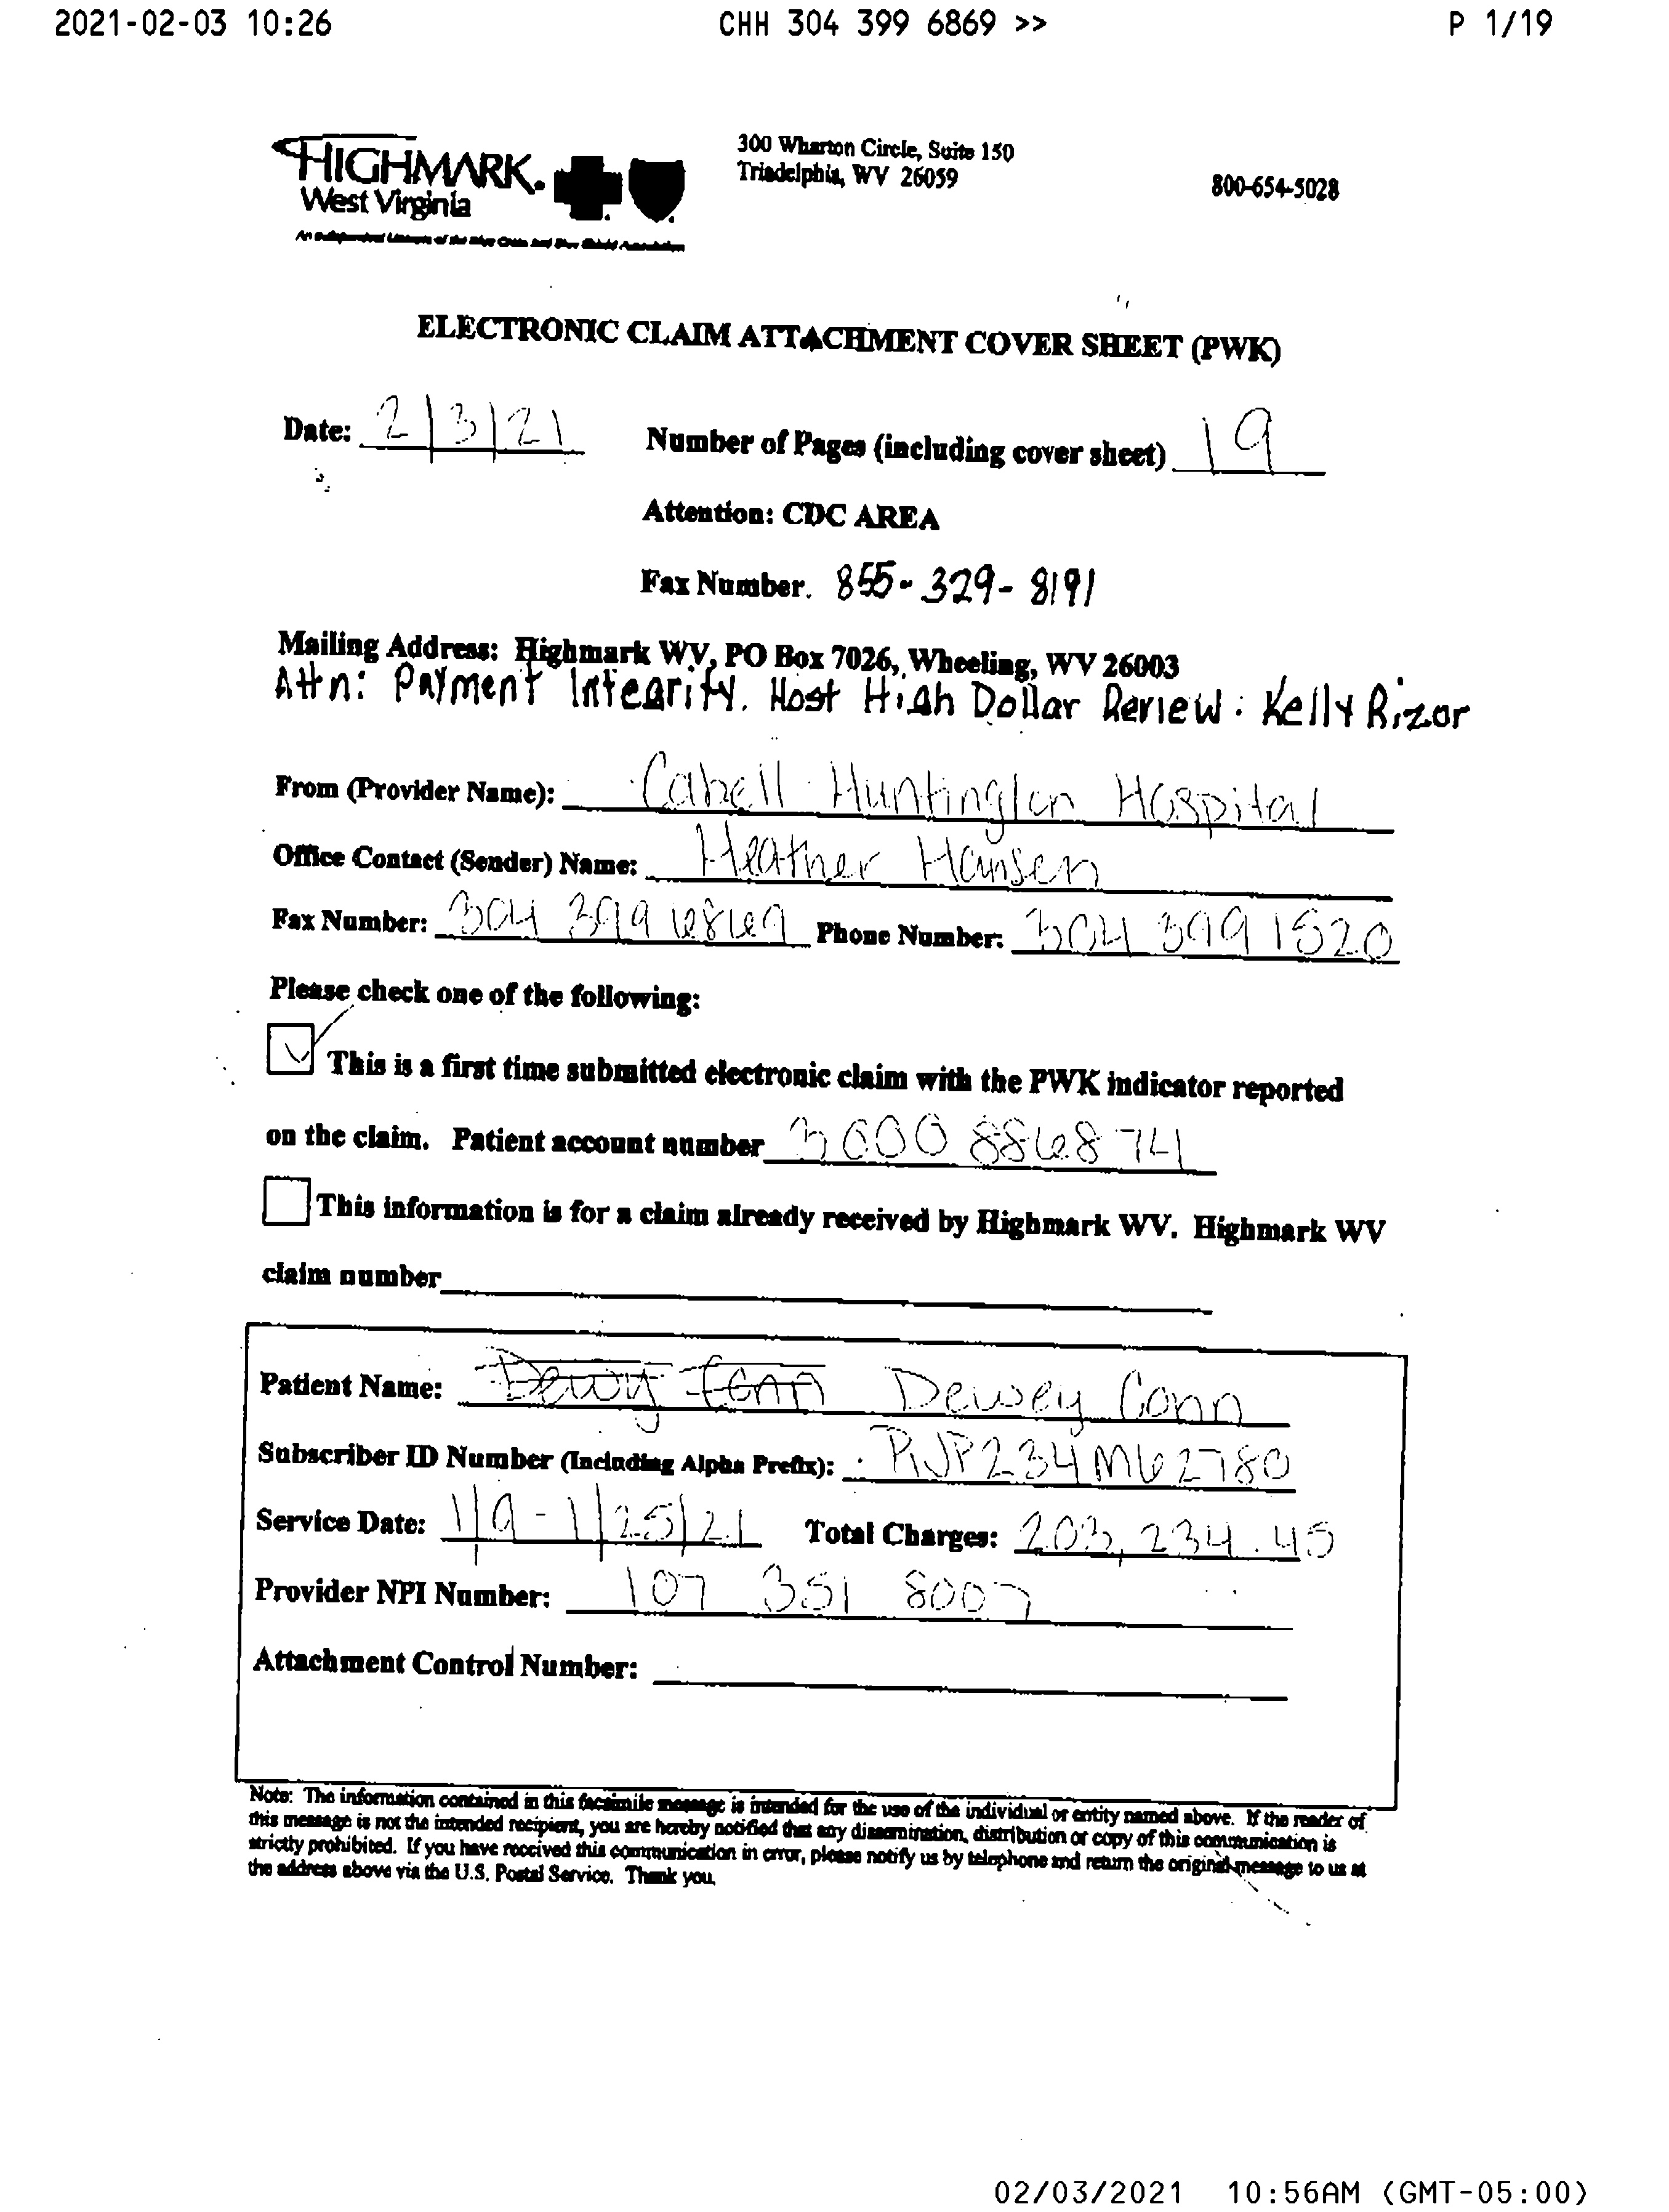 2021-02-03 10:26 CHH 304 399 6869 >> P 1/19
HIGHMARK.
West Virginia
An Independent Licensee of the Blue Cross and Blue Shield Association
300 Wharton Circle, Suite 150
Triadelphia, WV 26059
800-654-5028
ELECTRONIC CLAIM ATTACHMENT COVER SHEET (PWK)
Date: 2/3/21 Number of Pages (including cover sheet) 19
Attention: CDC AREA
Fax Number. 855-329-8191
Mailing Address: Highmark WV, PO Box 7026, Wheeling, WV 26003
Attn: Payment Integrity. Host High Dollar Review: Kelly Rizor
From (Provider Name): Cabell Huntington Hospital
Office Contact (Sender) Name: Heather Hansen
Fax Number: 304 399 6869 Phone Number: 304 399 1520
Please check one of the following:
This is a first time submitted electronic claim with the PWK indicator reported
on the claim. Patient account number 3600886874
This information is for a claim already received by Highmark WV. Highmark WV
claim number
Patient Name: Dewy Conn Dewey Conn
Subscriber ID Number (Including Alpha Prefix): RJP234M62780
Service Date: 1/9-1/25/21 Total Charges: 203,234.45
Provider NPI Number: 107 351 8007
Attachment Control Number:
Note: The information contained in this facsimile message is intended for the use of the individual or entity named above. If the reader of
this message is not the intended recipient, you are hereby notified that any dissemination, distribution or copy of this communication is
strictly prohibited. If you have received this communication in error, please notify us by telephone and return the original message to us at
the address above via the U.S. Postal Service. Thank you.
02/03/2021 10:56AM (GMT-05:00)